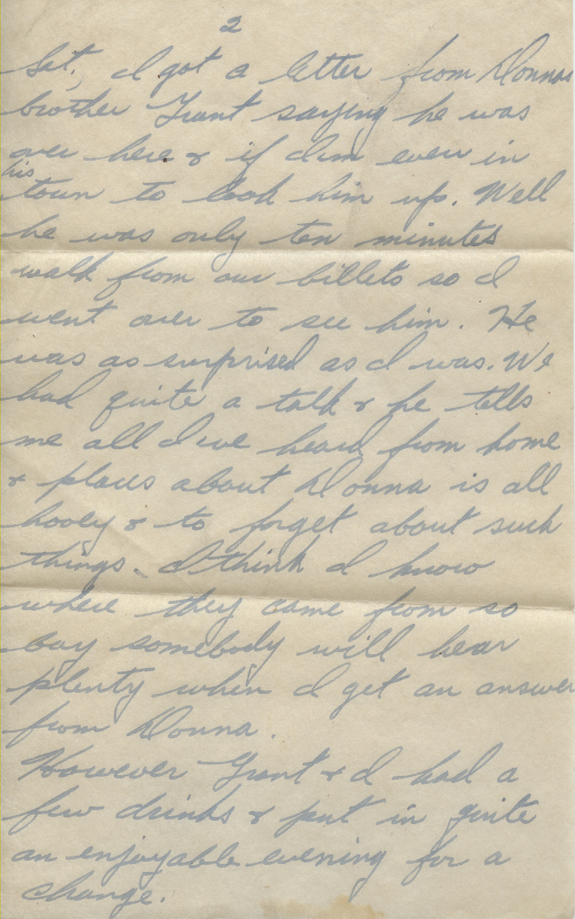 2
Sat, I got a letter from Donnas
brother Grant saying he was
over here & if I'm ever in
his
town to look him up. Well
he was only ten minutes
walk from our billets so I
went over to see him. He
was as surprised as I was. We
had quite a talk & he tells
me all I've heard from home
& places about Donna is all
hooey & to forget about such
things. I think I know
where they came from so
boy somebody will hear
plenty when I get an answer
from Donna.
However Grant & I had a
few drinks & put in quite
an enjoyable evening for a
change.